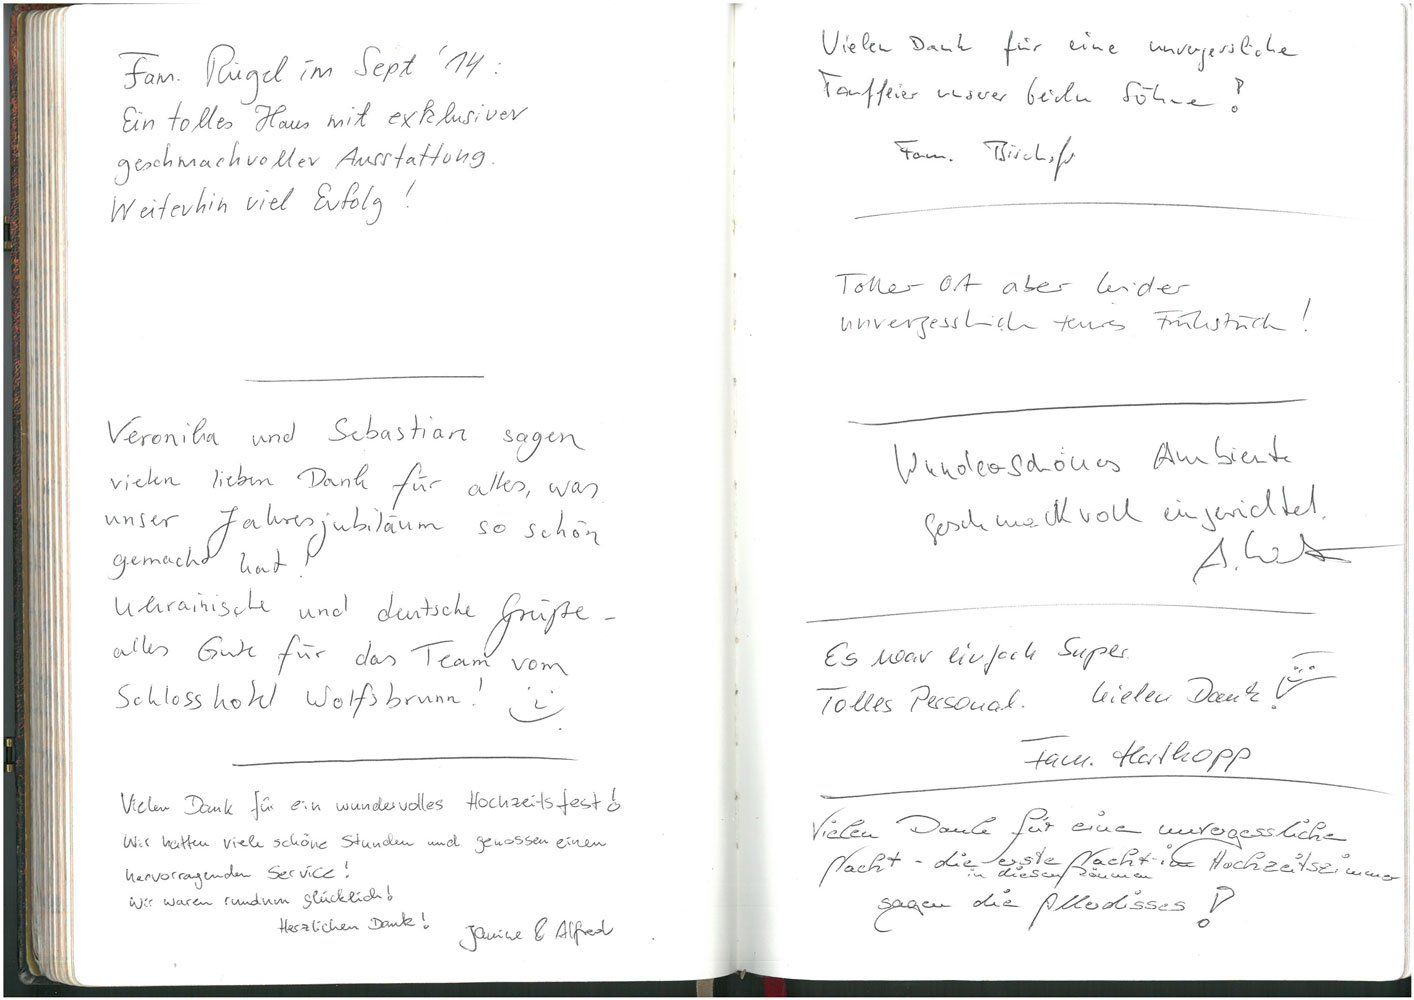 Fam. Rügel im Sept '14:
Ein tolles Haus mit exklusiver
geschmackvoller Ausstattung.
Weiterhin viel Erfolg!
Veronika und Sebastian sagen
vielen lieben Dank für alles, was
unser Jahresjubiläum so schön
gemacht hat!
Ukrainische und deutsche Grüße -
alles Gute für das Team vom
Schlosshotel Wolfsbrunn!
Vielen Dank für ein wundervolles Hochzeitsfest!
Wir hatten viele schöne Stunden und genossen einen
hervorragenden Service!
Wir waren rundum glücklich!
Herzlichen Dank!
Janine & Alfred
Vielen Dank für eine unvergessliche
Tauffeier unser beiden Söhne!
Fam. Bischoff
Toller Ort aber leider
unvergesslich teures Frühstück!
Wunderschönes Ambiente
geschmackvoll eingerichtet.
A.
Es war einfach Super.
Tolles Personal. Vielen Dank!
Fam. Harthopp
Vielen Dank für eine unvergessliche
Nacht - die erste Nacht im Hochzeitszimmer
in diesen Räumen
sagen die!